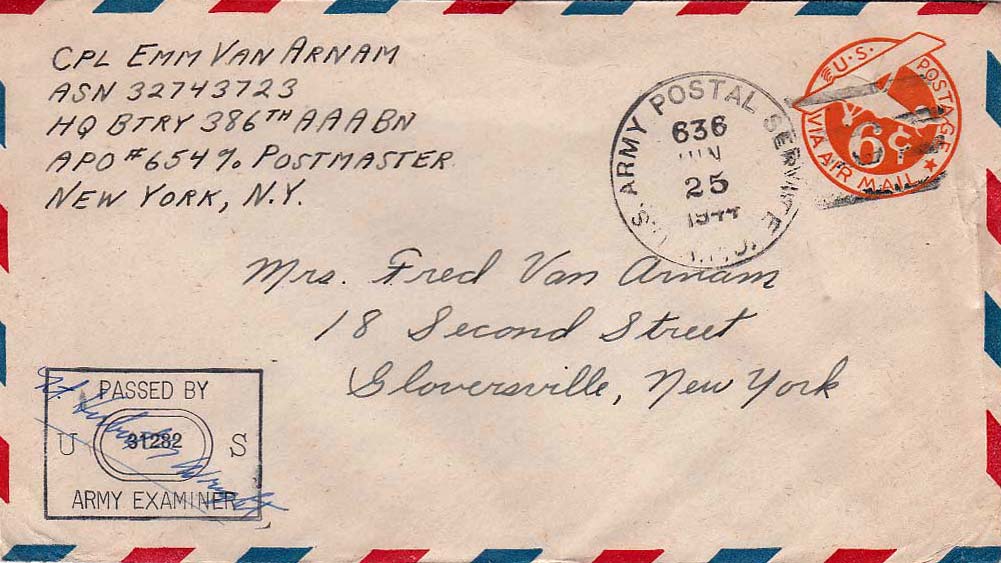 CPL EMM VAN ARNAM
ASN 32743723
HQ BTRY 386TH AAABN
APO #654 % POSTMASTER
NEW YORK, N.Y.
U.S. ARMY POSTAL SERVICE
A.P.O.
636
JUN
25
1944
U.S. POSTAGE
6¢
VIA AIR MAIL
Mrs. Fred Van Arnam
18 Second Street
Gloversville, New York
PASSED BY
U 31282 S
ARMY EXAMINER